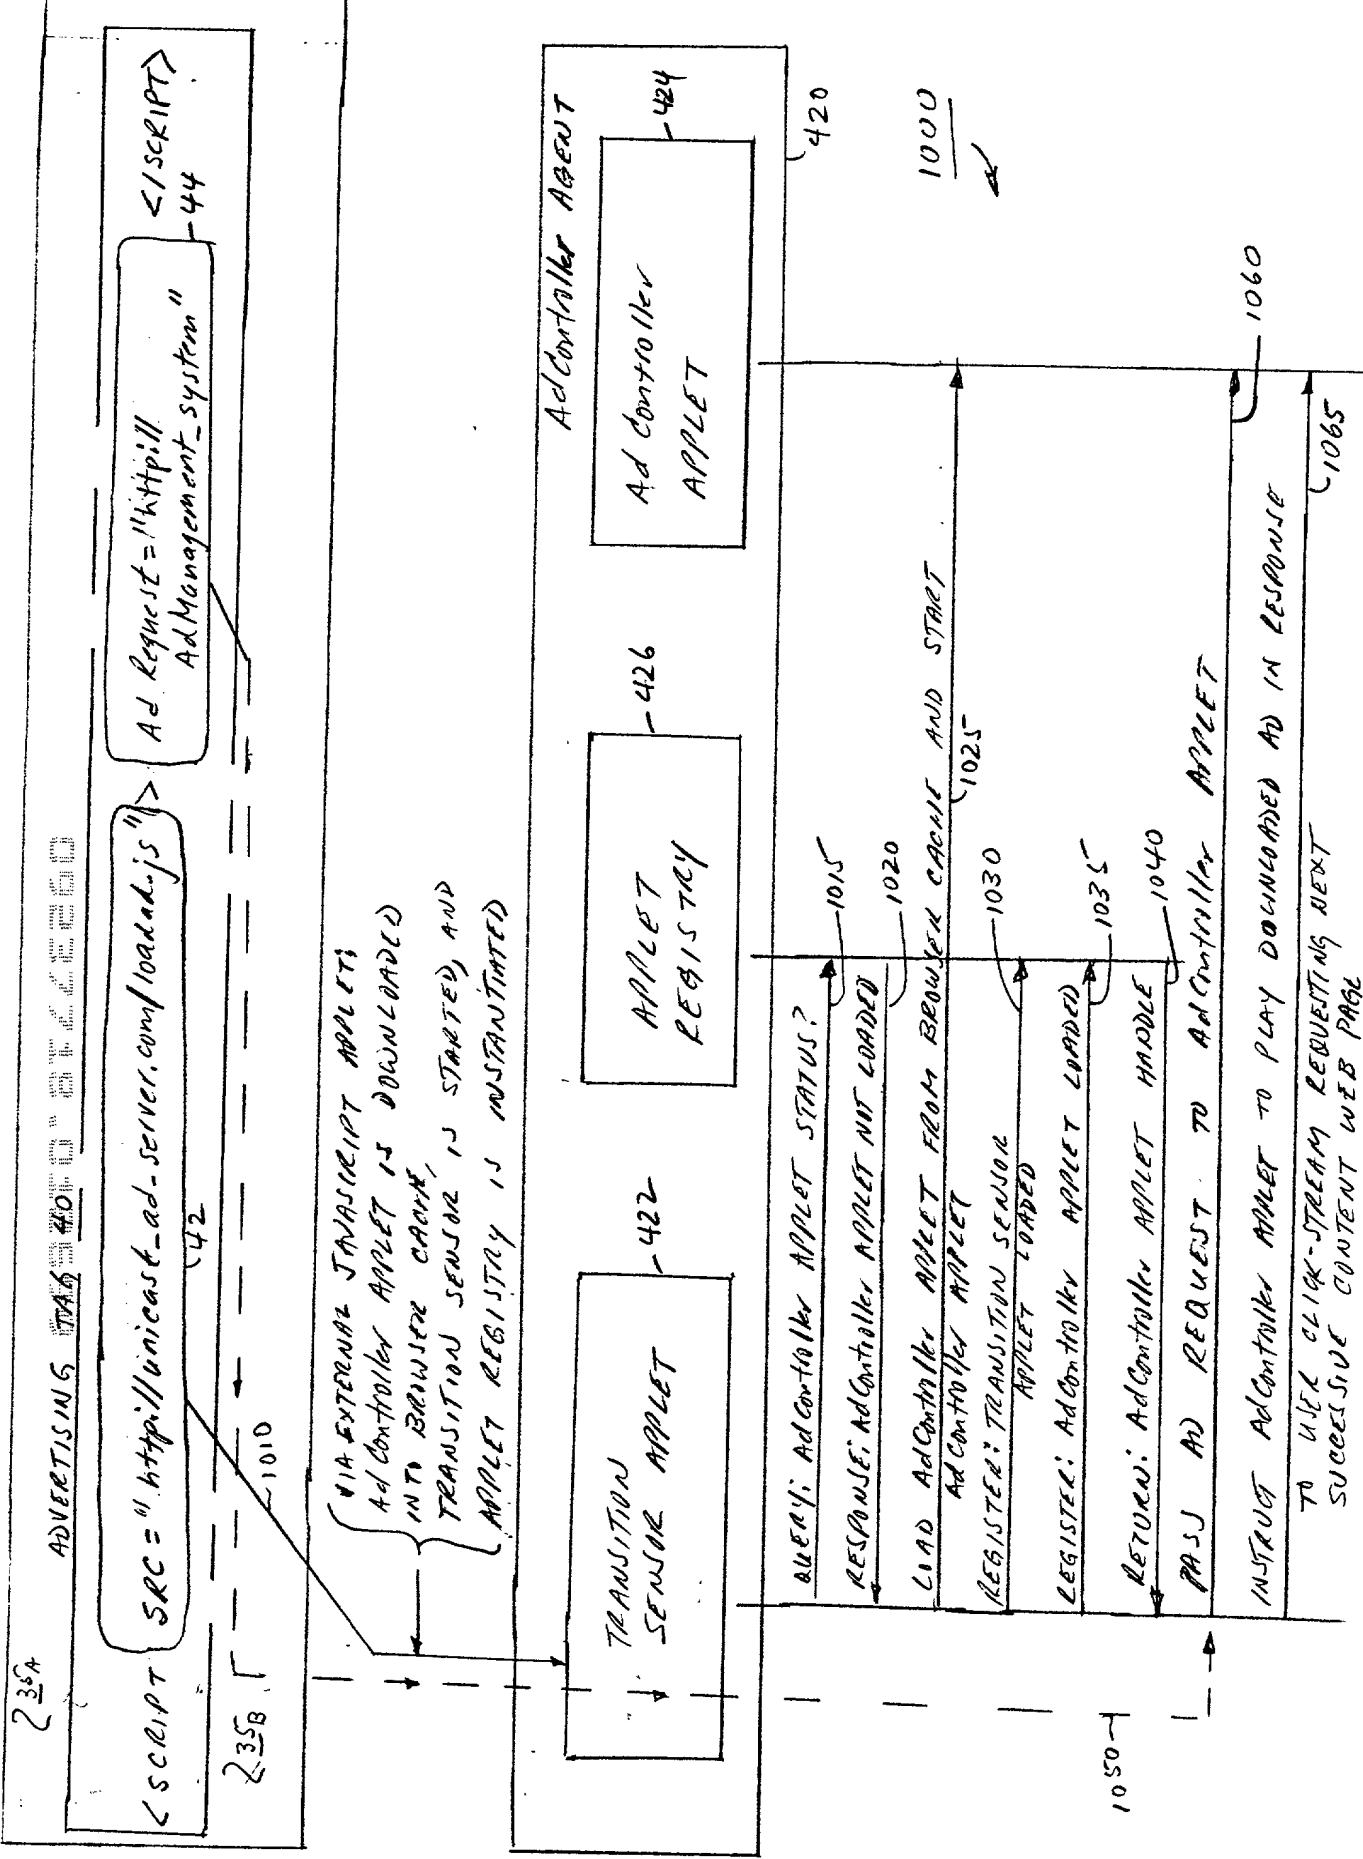 35A
ADVERTISING TAG 40
<SCRIPT SRC="http://unicast_ad-server.com/loadad.js"> Ad Request="http://
AdManagement_system" </SCRIPT>
42
44
35B
1010
VIA EXTERNAL JAVASCRIPT APPLET:
AdController APPLET IS DOWNLOADED
INTO BROWSER CACHE,
TRANSITION SENSOR IS STARTED, AND
APPLET REGISTRY IS INSTANTIATED
AdController AGENT
TRANSITION
SENSOR APPLET
422
APPLET
REGISTRY
426
Ad Controller
APPLET
424
420
1000
QUERY: AdController APPLET STATUS?
1015
RESPONSE: AdController APPLET NOT LOADED
1020
LOAD AdController APPLET FROM BROWSER CACHE AND START
AdController APPLET
1025
REGISTER: TRANSITION SENSOR
APPLET LOADED
1030
REGISTER: AdController APPLET LOADED
1035
RETURN: AdController APPLET HANDLE
1040
PASS AD REQUEST TO AdController APPLET
1050
1060
INSTRUCT AdController APPLET TO PLAY DOWNLOADED AD IN RESPONSE
TO USER CLICK-STREAM REQUESTING NEXT
SUCCESSIVE CONTENT WEB PAGE
1065